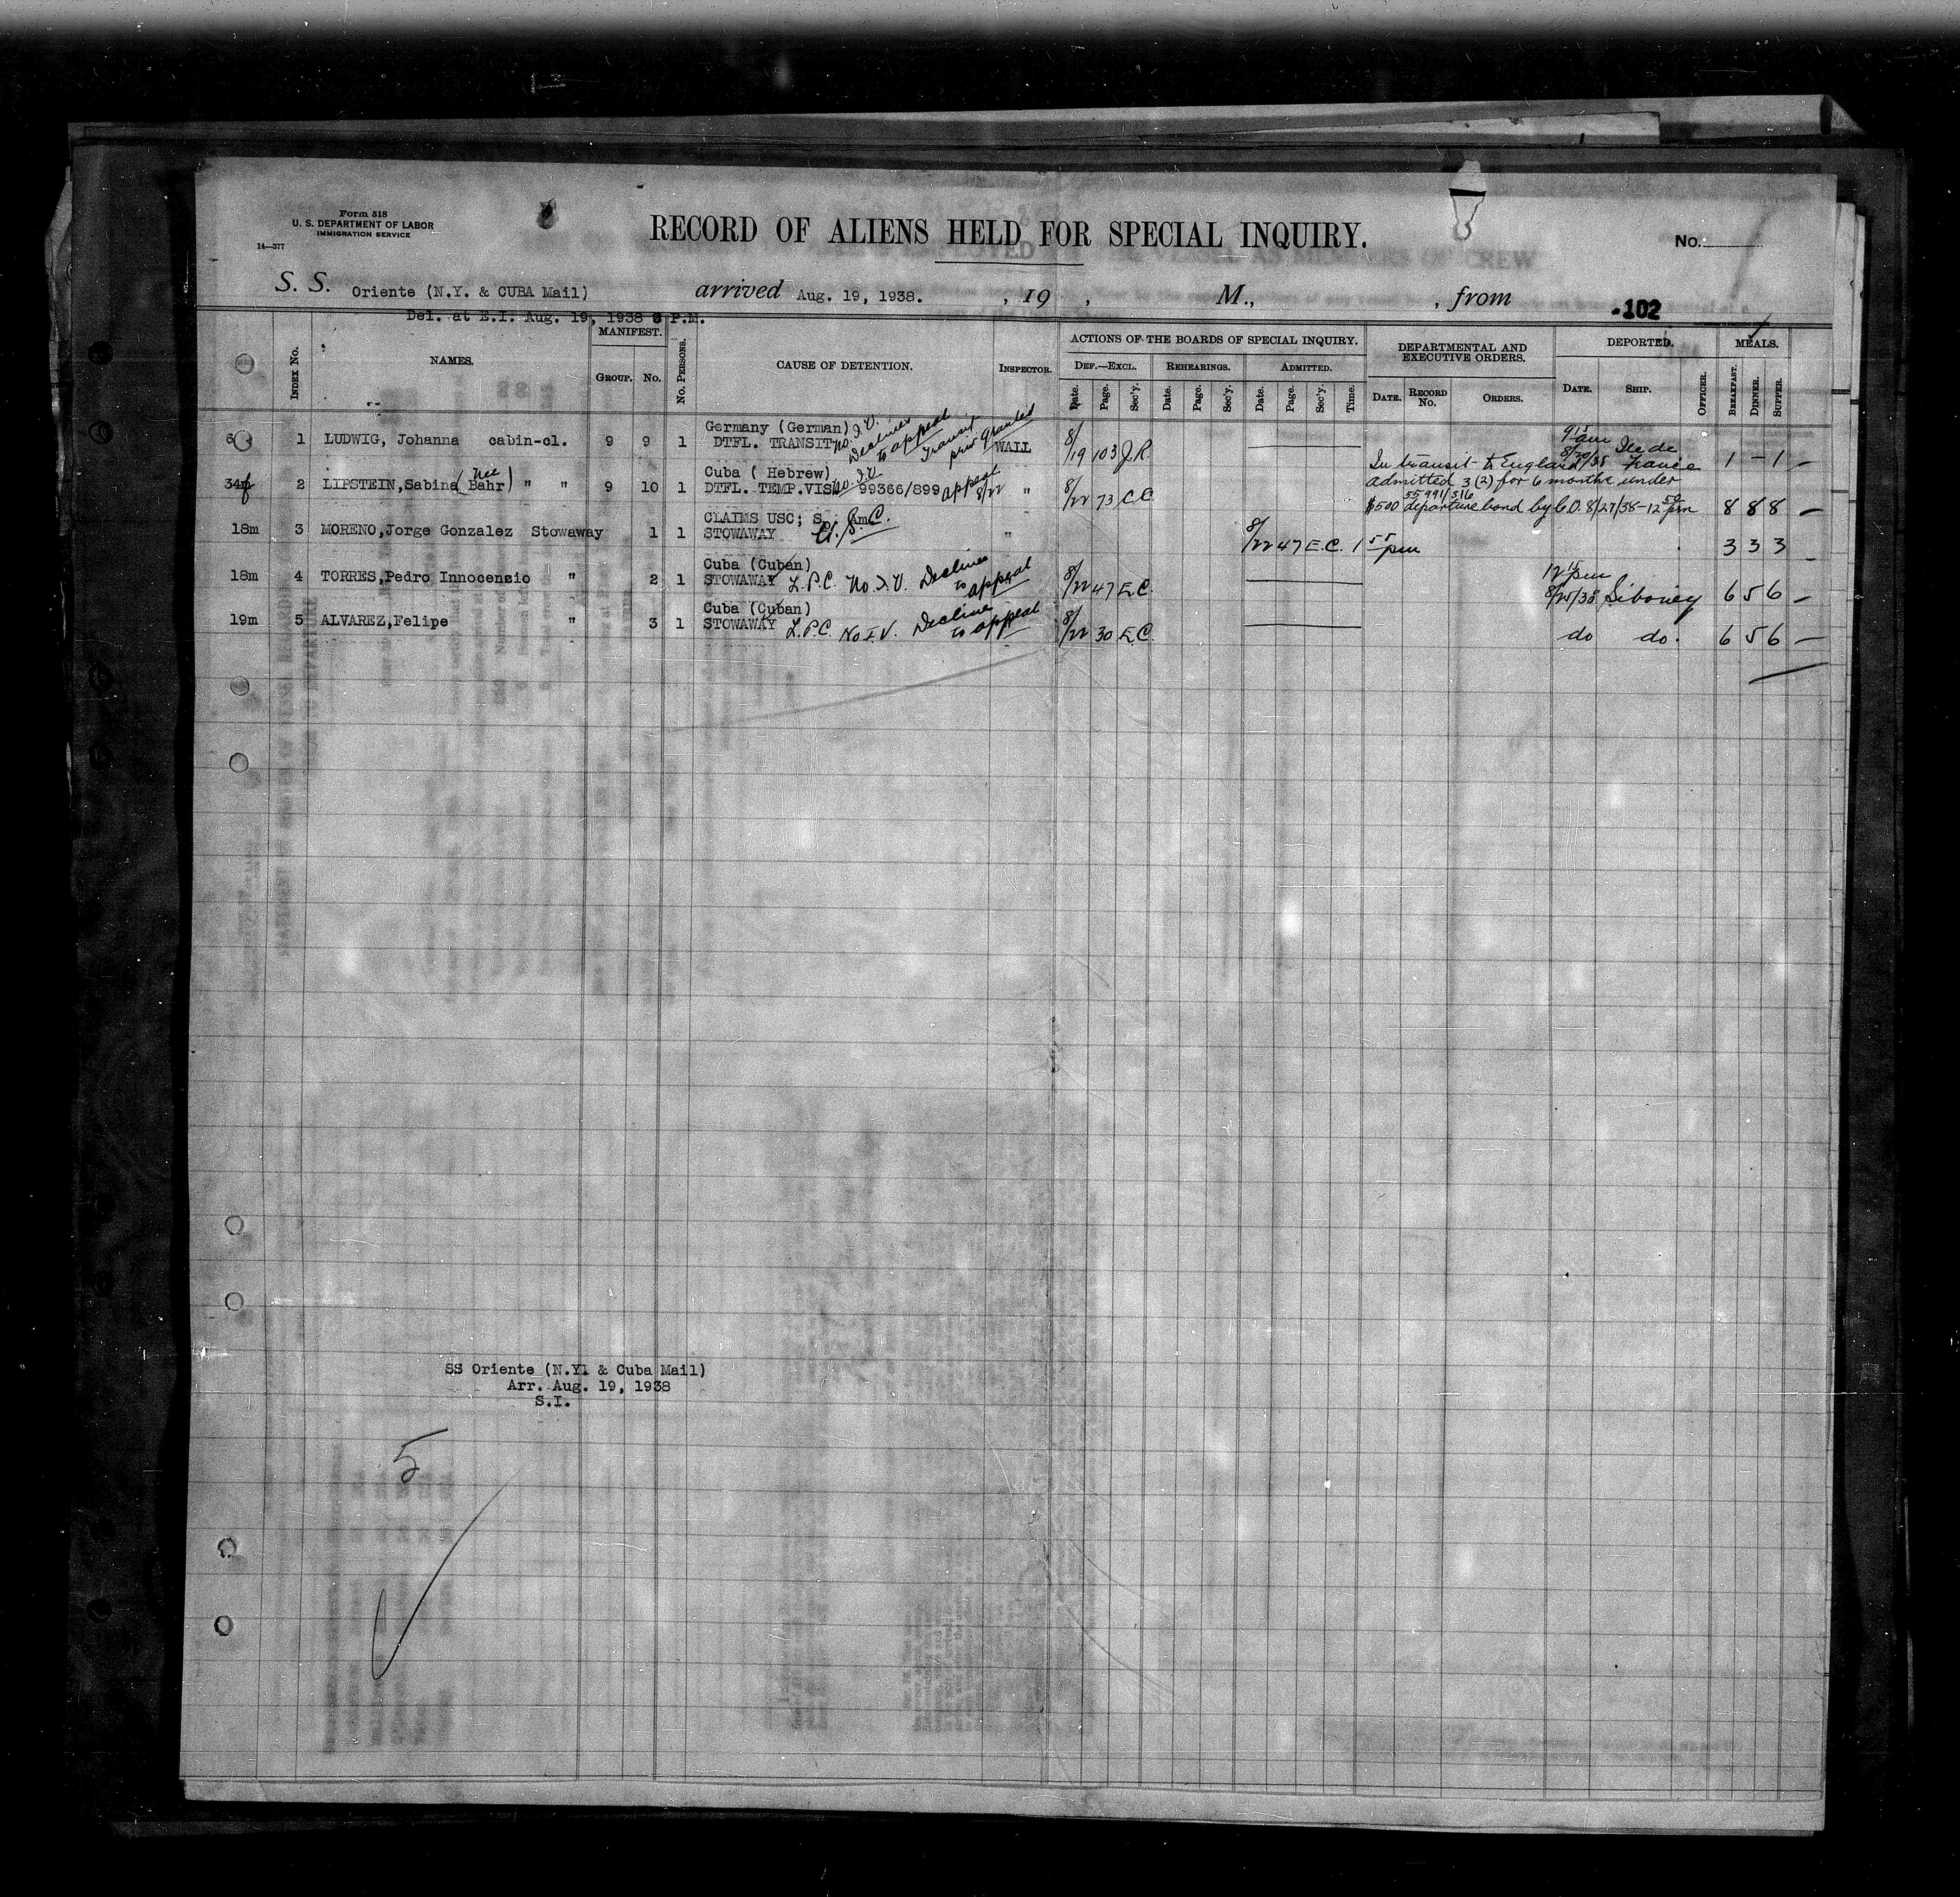 Form 518
U. S. DEPARTMENT OF LABOR
IMMIGRATION SERVICE
14—377
RECORD OF ALIENS HELD FOR SPECIAL INQUIRY.
No.
S. S. Oriente (N.Y. & CUBA Mail) arrived Aug. 19, 1938. , 19 , M., , from
Del. at E.I. Aug. 19, 1938 P.M.
-102
INDEX No. NAMES. MANIFEST. GROUP. No. No. PERSONS. CAUSE OF DETENTION. INSPECTOR. ACTIONS OF THE BOARDS OF SPECIAL INQUIRY. DEPARTMENTAL AND EXECUTIVE ORDERS. DEPORTED. MEALS.
DEF.—EXCL. REHEARINGS. ADMITTED.
Date. Page. Sec'y. Date. Page. Sec'y. Date. Page. Sec'y. Time. DATE. RECORD No. ORDERS. DATE. SHIP. OFFICER. BREAKFAST. DINNER. SUPPER.
Germany (German) No I.V. Declines to appeal Transit priv granted
1 LUDWIG, Johanna cabin-cl. 9 9 1 DTFL. TRANSIT WALL 8/19 103 J.R. In transit to England 9 15 am 8/20/38 Ile de France 1 - 1 —
Cuba ( Hebrew) No I.V. appeal 8/22
2 LIPSTEIN,Sabina (nee Bahr) " " 9 10 1 DTFL. TEMP.VISA 99366/899 " 8/22 73 C.C. admitted 3(2) for 6 months under
55991/316
$500 departure bond by C.O. 8/27/38-12 50 pm 8 8 8 —
CLAIMS USC; S. AmC.
18m 3 MORENO,Jorge Gonzalez Stowaway 1 1 STOWAWAY " 8/22 47 E.C. 1 55 pm 3 3 3 —
Cuba (Cuban)
18m 4 TORRES,Pedro Innocenzio " 2 1 STOWAWAY L.P.C. No I.V. Decline to appeal 8/22 47 E.C. 12 15 pm 8/25/38 Siboney 6 5 6 —
Cuba (Cuban)
19m 5 ALVAREZ,Felipe " 3 1 STOWAWAY L.P.C. No I.V. Decline to appeal 8/22 30 E.C. do do. 6 5 6 —
SS Oriente (N.Y. & Cuba Mail)
Arr. Aug. 19, 1938
S.I.
5